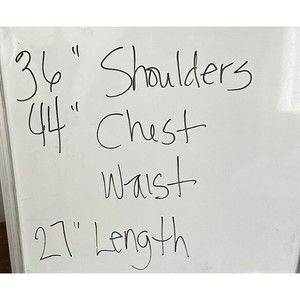 36" Shoulders
44" Chest
Waist
27" Length